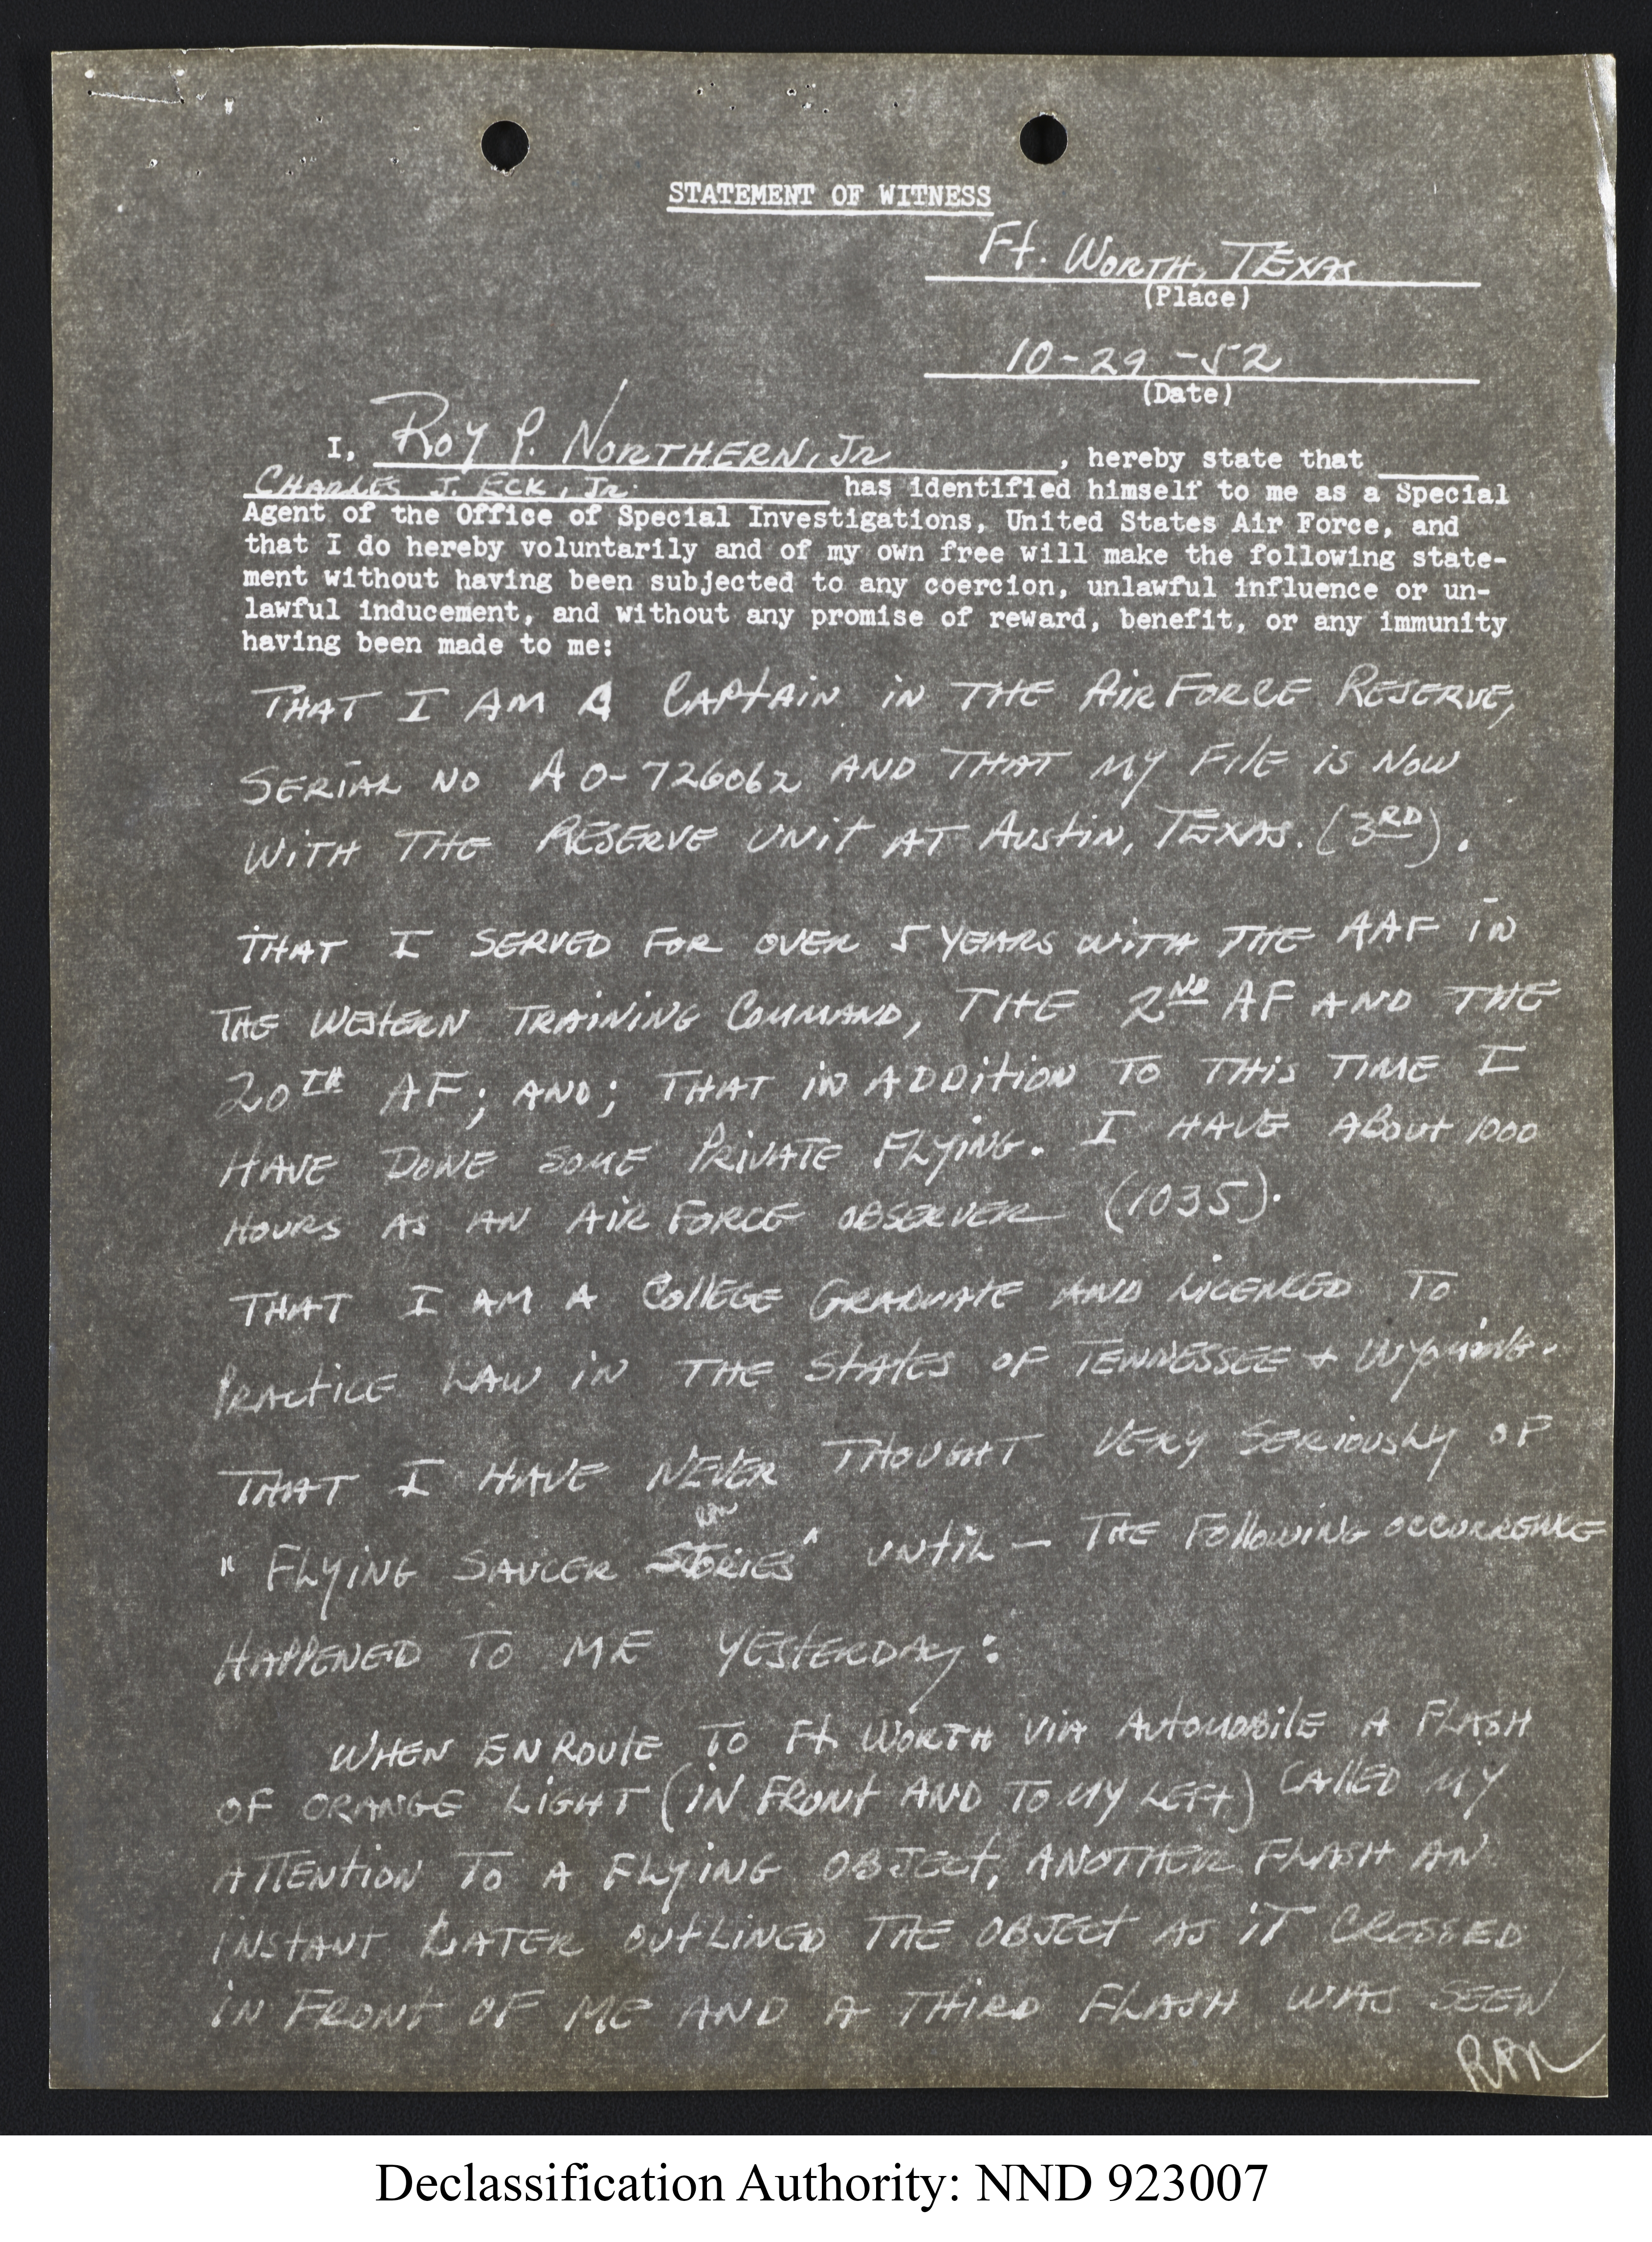 STATEMENT OF WITNESS
Ft. WORTH, TEXAS
(Place)
10-29-52
(Date)
I, ROY P. NORTHERN, JR , hereby state that
CHARLES J. ECK, JR. has identified himself to me as a Special
Agent of the Office of Special Investigations, United States Air Force, and
that I do hereby voluntarily and of my own free will make the following state-
ment without having been subjected to any coercion, unlawful influence or un-
lawful inducement, and without any promise of reward, benefit, or any immunity
having been made to me:
THAT I AM A CAPTAIN IN THE AIR FORCE RESERVE,
SERIAL NO AO-726062 AND THAT MY FILE IS NOW
WITH THE RESERVE UNIT AT AUSTIN, TEXAS. (3RD).
THAT I SERVED FOR OVER 5 YEARS WITH THE AAF IN
THE WESTERN TRAINING COMMAND, THE 2ND AF AND THE
20TH AF; AND; THAT IN ADDITION TO THIS TIME I
HAVE DONE SOME PRIVATE FLYING. I HAVE ABOUT 1000
HOURS AS AN AIR FORCE OBSERVER (1035).
THAT I AM A COLLEGE GRADUATE AND LICENCED TO
PRACTICE LAW IN THE STATES OF TENNESSEE + WYOMING.
THAT I HAVE NEVER THOUGHT VERY SERIOUSLY OF
RPN
"FLYING SAUCER STORIES" UNTIL — THE FOLLOWING OCCURRENCE
HAPPENED TO ME YESTERDAY:
WHEN ENROUTE TO Ft WORTH VIA AUTOMOBILE A FLASH
OF ORANGE LIGHT (IN FRONT AND TO MY LEFT) CALLED MY
ATTENTION TO A FLYING OBJECT, ANOTHER FLASH AN
INSTANT LATER OUTLINED THE OBJECT AS IT CROSSED
IN FRONT OF ME AND A THIRD FLASH WAS SEEN
RPN
Declassification Authority: NND 923007